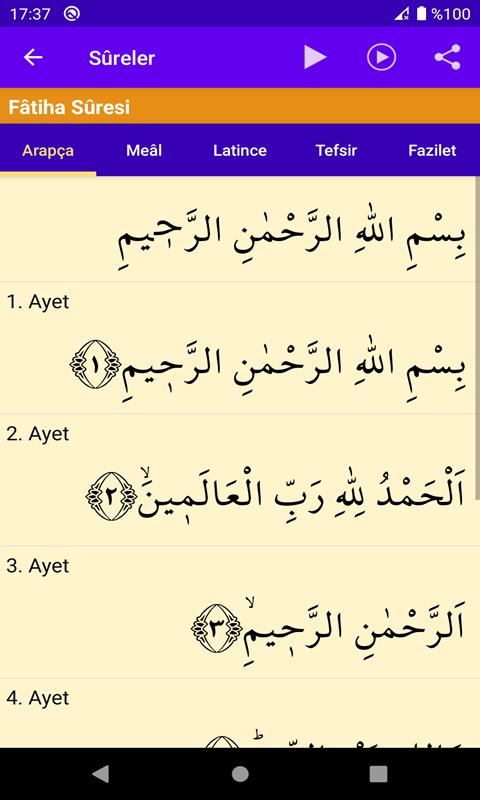 17:37 %100
Sûreler
Fâtiha Sûresi
Arapça Meâl Latince Tefsir Fazilet
بِسْمِ اللهِ الرَّحْمٰنِ الرَّحٖيمِ
1. Ayet
بِسْمِ اللهِ الرَّحْمٰنِ الرَّحٖيمِ ﴿١﴾
2. Ayet
اَلْحَمْدُ لِلّٰهِ رَبِّ الْعَالَمٖينَۙ ﴿٢﴾
3. Ayet
اَلرَّحْمٰنِ الرَّحٖيمِۙ ﴿٣﴾
4. Ayet